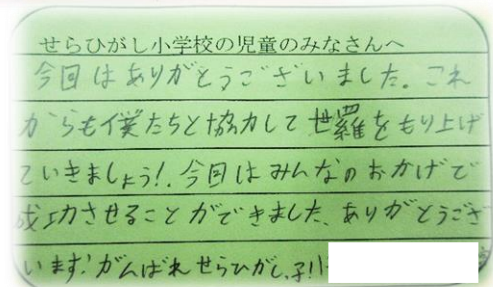 せらひがし小学校の児童のみなさんへ
今回はありがとうございました。これ
からも僕たちと協力して世羅をもり上げ
ていきましょう!.今回はみんなのおかげで
成功させることができました、ありがとうござ
います!がんばれせらひがし